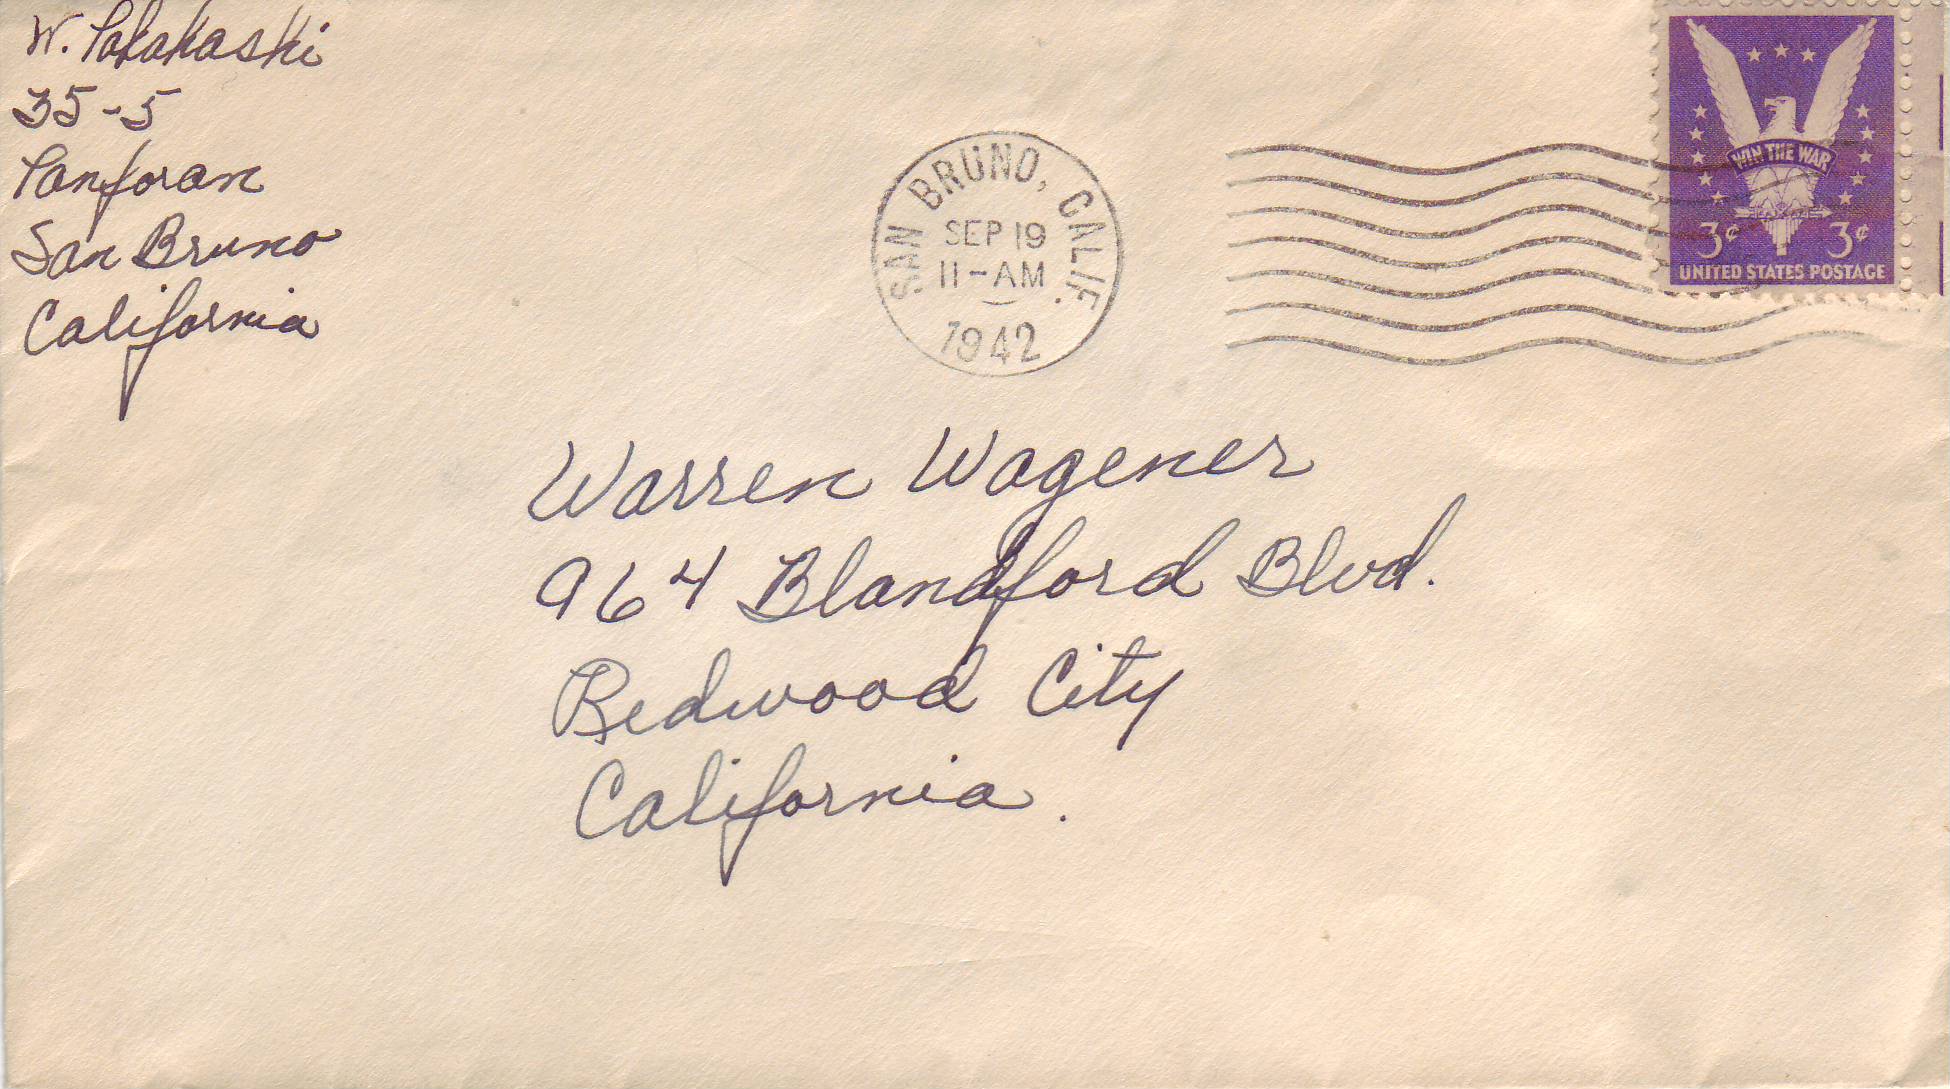 W. Takahashi
35-5
Tanforan
San Bruno
California
SAN BRUNO, CALIF.
SEP 19
11-AM
1942
WIN THE WAR
3¢ 3¢
UNITED STATES POSTAGE
Warren Wagener
964 Blandford Blvd.
Redwood City
California.